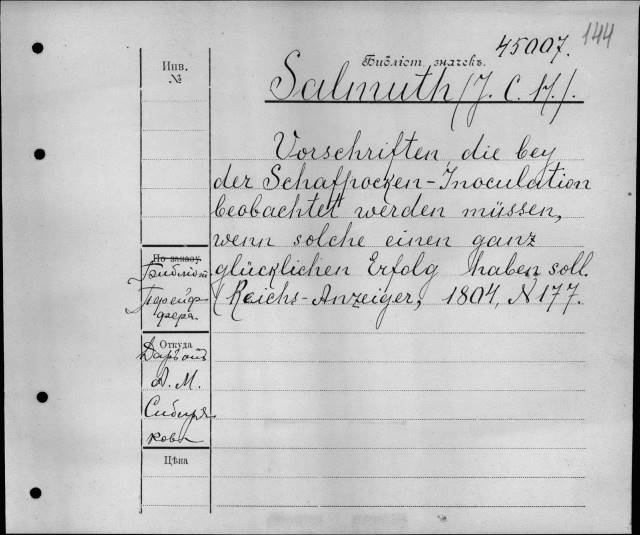 144
45007.
Библіот. значекъ.
Salmuth (J. C. H.).
Инв.
№
Vorschriften, die bey
der Schafpocken-Inoculation
beobachtet werden müssen,
wenn solche einen ganz
glücklichen Erfolg haben soll.
(Reichs-Anzeiger, 1804, N 177.
По заказу
Библіот.
Пфейф
фера
Откуда
Даръ отъ
А. М.
Сибиря
кова
Цѣна